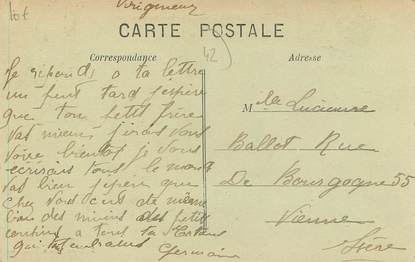 lot
Virigneux
CARTE POSTALE
42
Correspondance
Adresse
Je réponds a ta lettre
un peut tard j'espère
que ton petit frère
vas mieux j'irais vous
voire bientot je vous
écrirais tous le mont
vas bien j'espere que
chez vous s'est de même
bien des
petit
cousins a tous ta
qui
Germain
Mlle Lucienne
Ballot Rue
De Bourgogne 55
Vienne
Isère